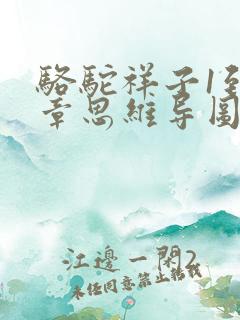 駱駝祥子1至
章思維導圖
江邊一閑2
未經同意禁止轉載